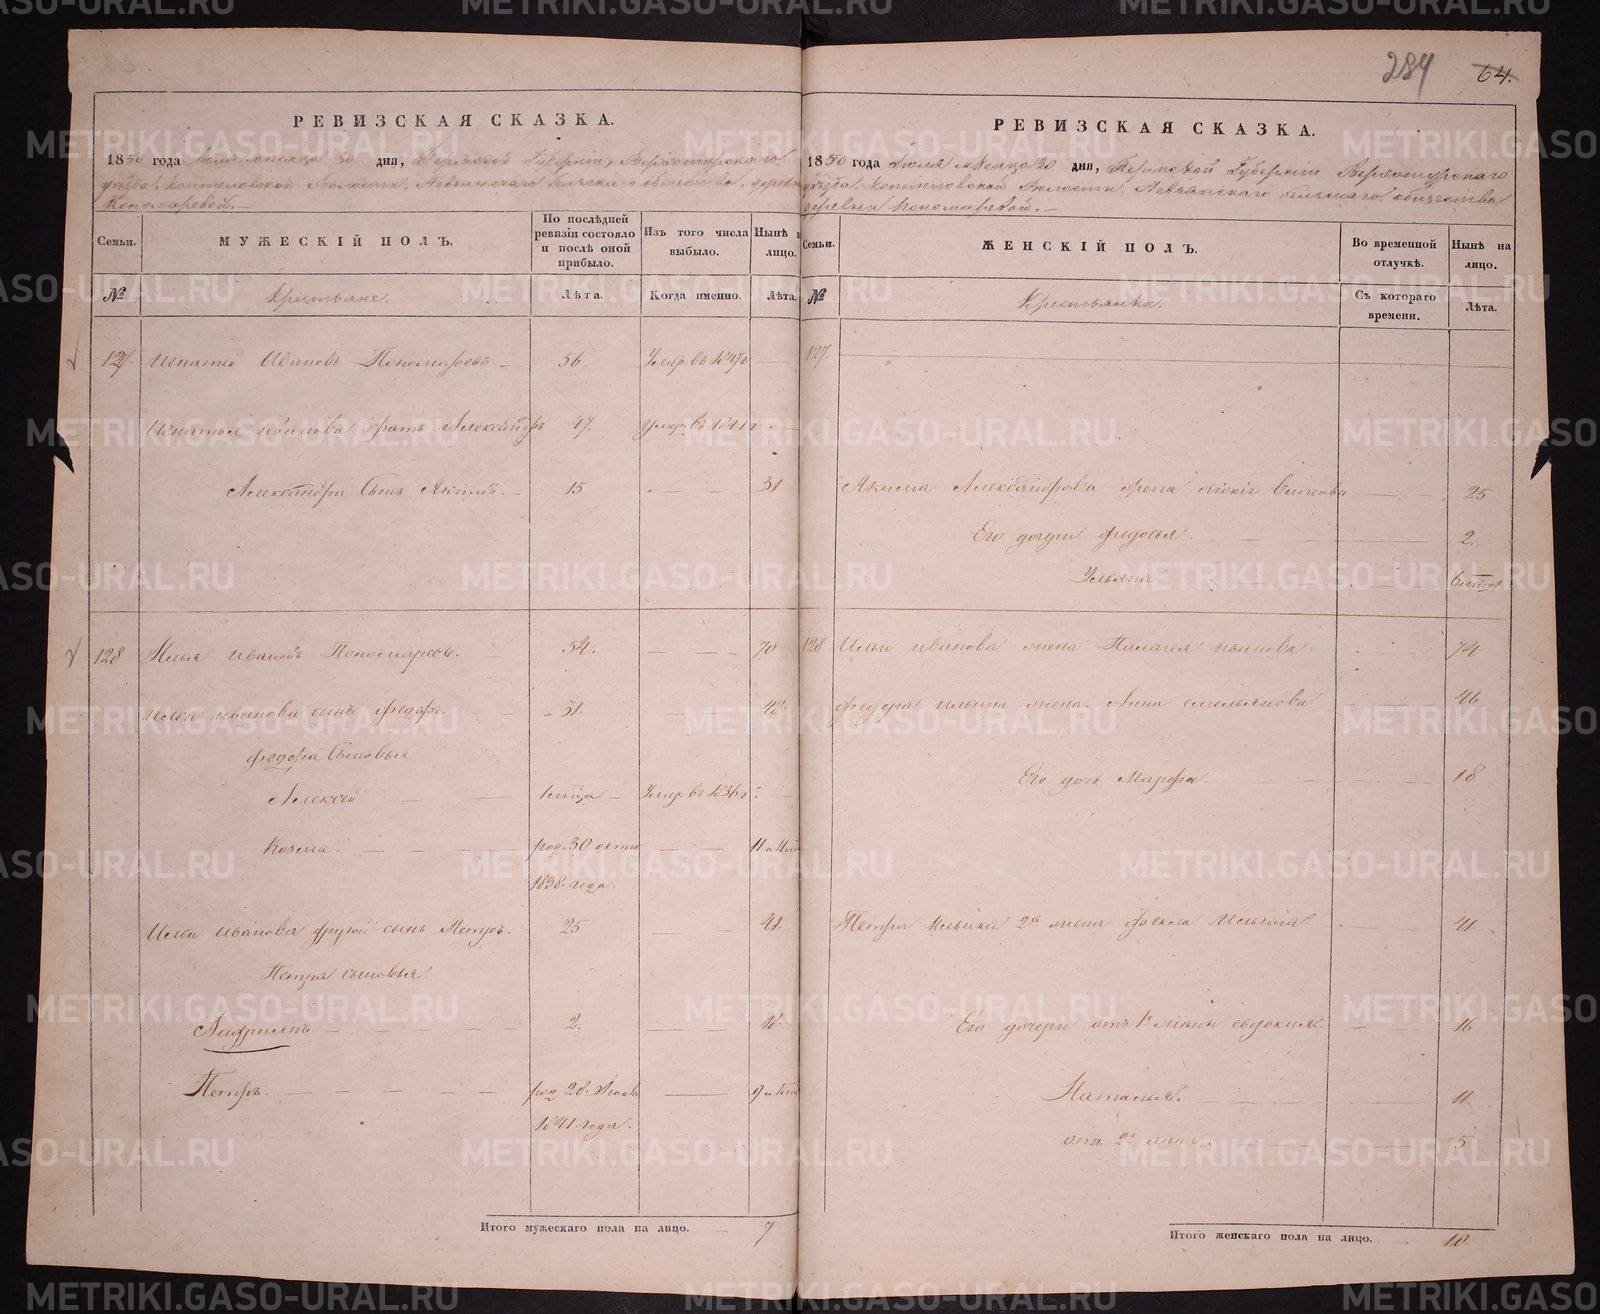 284 64.
РЕВИЗСКАЯ СКАЗКА.
1850 года Июля месяца 30 дня, Пермской Губернии, Верхотурского
уезда, Коптеловской Волости, Невьянского Сельского общества, деревни
Пономаревой.
Семьи.
МУЖЕСКІЙ ПОЛЪ.
По послѣдней ревизіи состояло и послѣ оной прибыло.
Изъ того числа выбыло.
Нынѣ на лицо.
№
Крестьяне.
Лѣта.
Когда именно.
Лѣта.
127. Игнатей Ивановъ Пономаревъ 56 Умер. въ 1847г
Игнатья Иванова братъ Александръ 47. Умер. въ 1841г
Александра Сынъ Якимъ. 15 31
128 Илья Ивановъ Пономаревъ. 54. 70
Ильи Иванова сынъ Федоръ. 31. 48
Федора Сыновья
Алексей Умер. въ 1836г.
Козма. род. 30 окто 11
1838. года.
Ильи Иванова другой сынъ Петръ. 25 41
Петра сыновья
Андриянъ 2. 18
Петръ. род 28. 9
1841 года.
Итого мужескаго пола на лицо. 7
РЕВИЗСКАЯ СКАЗКА.
1850 года Июля месяца 30 дня, Пермской Губернии Верхотурского
уезда, Коптеловской Волости, Невьянского Сельского общества
деревни Пономаревой.
Семьи.
ЖЕНСКІЙ ПОЛЪ.
Во временной отлучкѣ.
Нынѣ на лицо.
№
Крестьянки.
Съ котораго времени.
Лѣта.
127.
Якима Александрова жена 25
Его дочери Федосья. 2.
Ульяна
128 Ильи Иванова жена Палагея Иванова. 74
Федора Ильина жена Анна Емельянова 46
Его дочь Марфа. 18
Петра Ильина 2я жена Фекла 41
Его дочери отъ 1й жены Евдокия. 16
Наталья. 11
отъ 2й 5
Итого женскаго пола на лицо. 10
METRIKI.GASO-URAL.RU